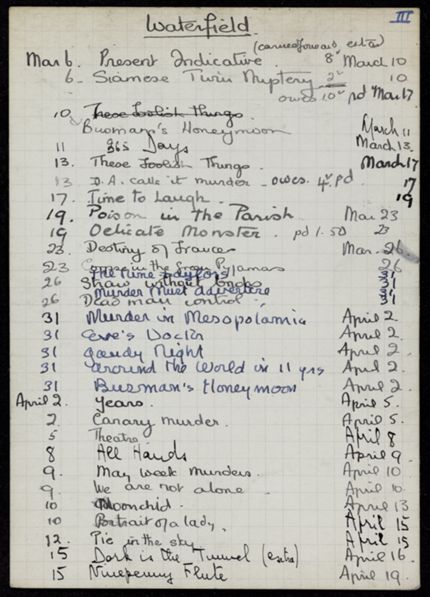 III
Waterfield.
(carried forward extra)
Mar 6. Present Indicative. 8d March 10
6. Siamese Twin Mystery 2d 10
owes 10d pd Mar 17
10 These Foolish Things.
Busman's Honeymoon March 11
11 365 Days March 13.
13. These Foolish Things. March 17
13 D.A. calls it murder - owes 4d. pd. 17
17. Time to Laugh. 19
19. Poison in the Parish Mar 23
19 Delicate Monster. pd 1.50 23
23. Destiny of Frances Mar. 26
23 in the Green Pyjamas 26
The Nine Taylors 31
26 Straw without bricks 31
Murder Must Advertise 31
26 Dead man control 31
31 Murder in Mesopotamia April 2
31 Eve's Doctor April 2.
31 Gaudy Night April 2.
31 Around the World in 11 yrs April 2.
31 Busman's Honeymoon April 2
April 2. Years. April 5.
2. Canary murder. April 5.
5 Theatre. April 8
8 All Hands April 9
9. May week Murders. April 10
9. We are not alone April 10.
10 Moonchild. April 13
10 Portrait of a lady. April 15
12. Pie in the sky April 15
15 Dark is the Tunnel (extra) April 16
15 Ninepenny Flute April 19.